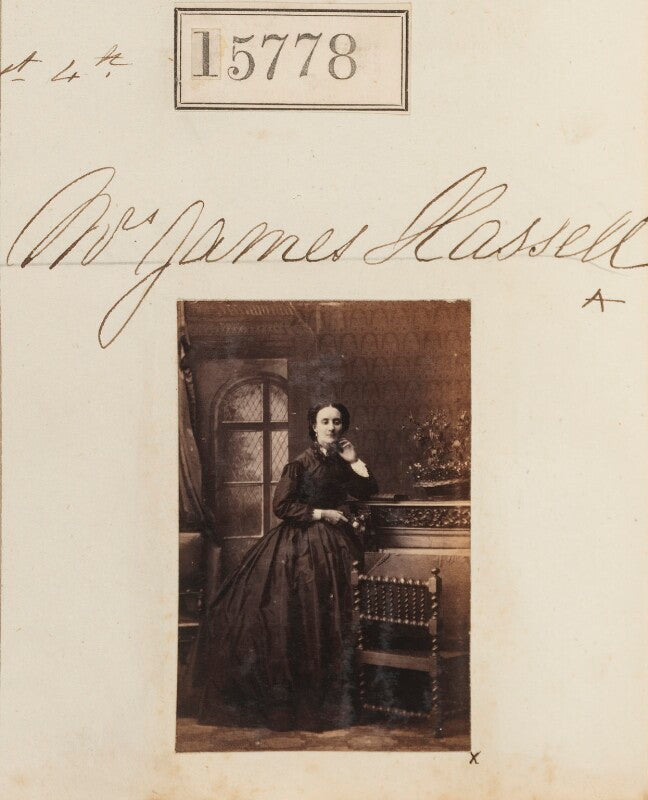 15778
st 4th
Mrs James Hassell
A
x